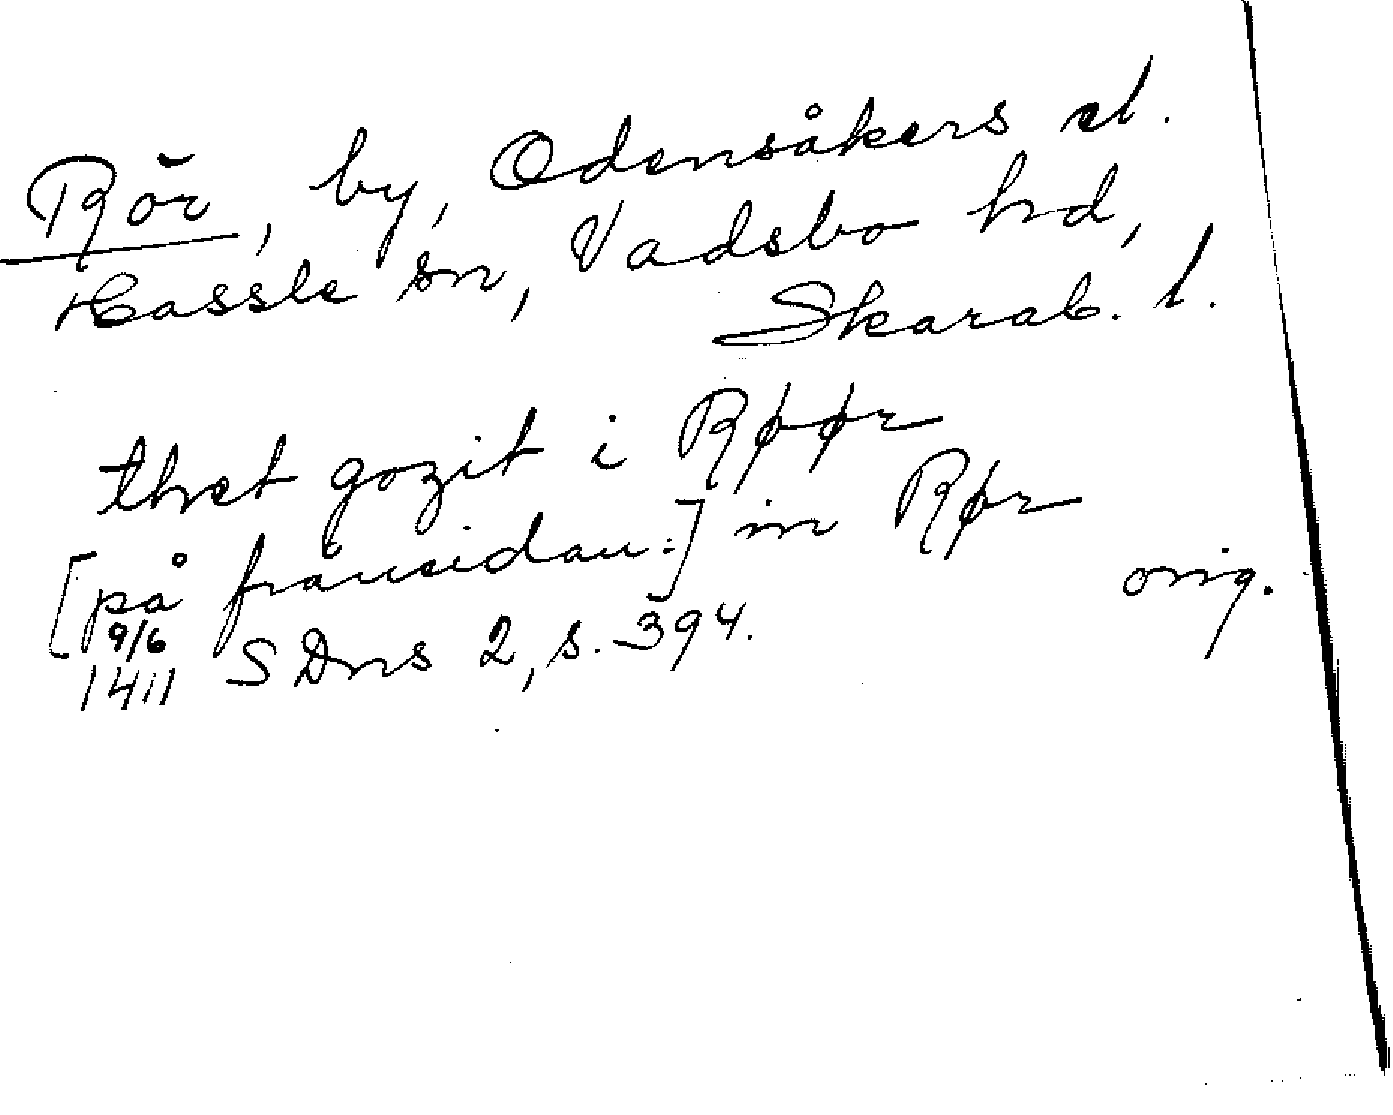 Rör, by, Odensåkers d.
Hassle sn, Vadsbo hd,
Skarab. l.
thet gozit i Røør
[på fransidan:] in Rør
orig.
9/6
1411 SDns 2, s. 394.